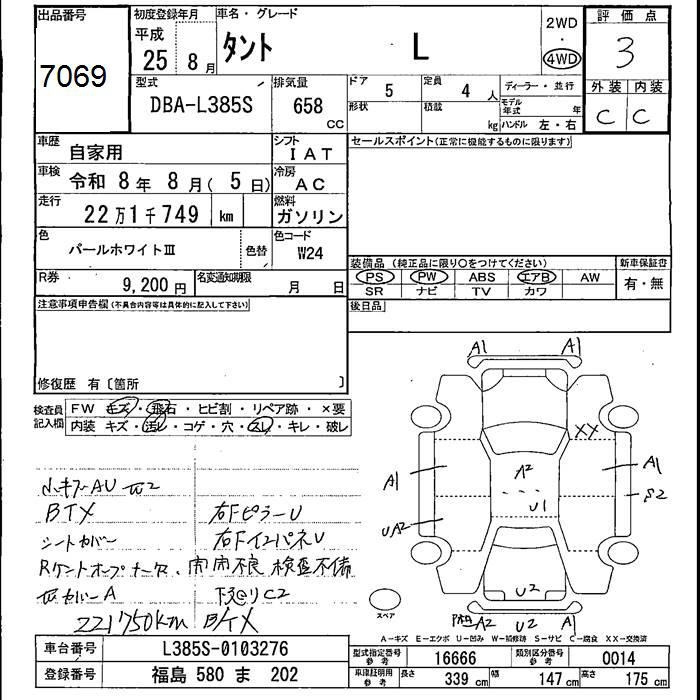 出品番号
7069
初度登録年月
平成
25 8月
車名・グレード
タント L
2WD
・
4WD
評価点
3
外装 内装
C C
型式
DBA-L385S
排気量
658
CC
ドア
5
定員
4人
ディーラー・並行
形状
積載
kg
モデル年式
年
ハンドル 左・右
車歴
自家用
シフト
IAT
セールスポイント(正常に機能するものに限ります)
車検
令和8年8月(5日)
冷房
AC
走行
22万1千749 km
燃料
ガソリン
色
パールホワイトⅢ
色替
色コード
W24
装備品(純正品に限り○をつけてください)
新車保証書
PS PW ABS エアB AW
SR ナビ TV カワ
有・無
R券
9,200円
名変通知期限
月 日
後日品
注意事項申告欄(不具合内容等は具体的に記入して下さい)
修復歴 有〔箇所 〕
検査員記入欄
FW キズ・飛石・ヒビ割・リペア跡・×要
内装 キズ・汚レ・コゲ・穴・スレ・キレ・破レ
A1 A1
XX
A1 A2 A1
U1 S2
UA2
U2
A2 U2 A1
スペア
BTX
右FピラーU
シートカバー
右FインパネU
検査不備
下廻りC2
221750km BTX
A-キズ E-エクボ U-凹み W-補修跡 S-サビ C-腐食 XX-交換済
車台番号
L385S-0103276
登録番号
福島 580 ま 202
型式指定番号
参考
16666
類別区分番号
参考
0014
車庫証明用
参考
長さ 339 cm 幅 147 cm 高さ 175 cm